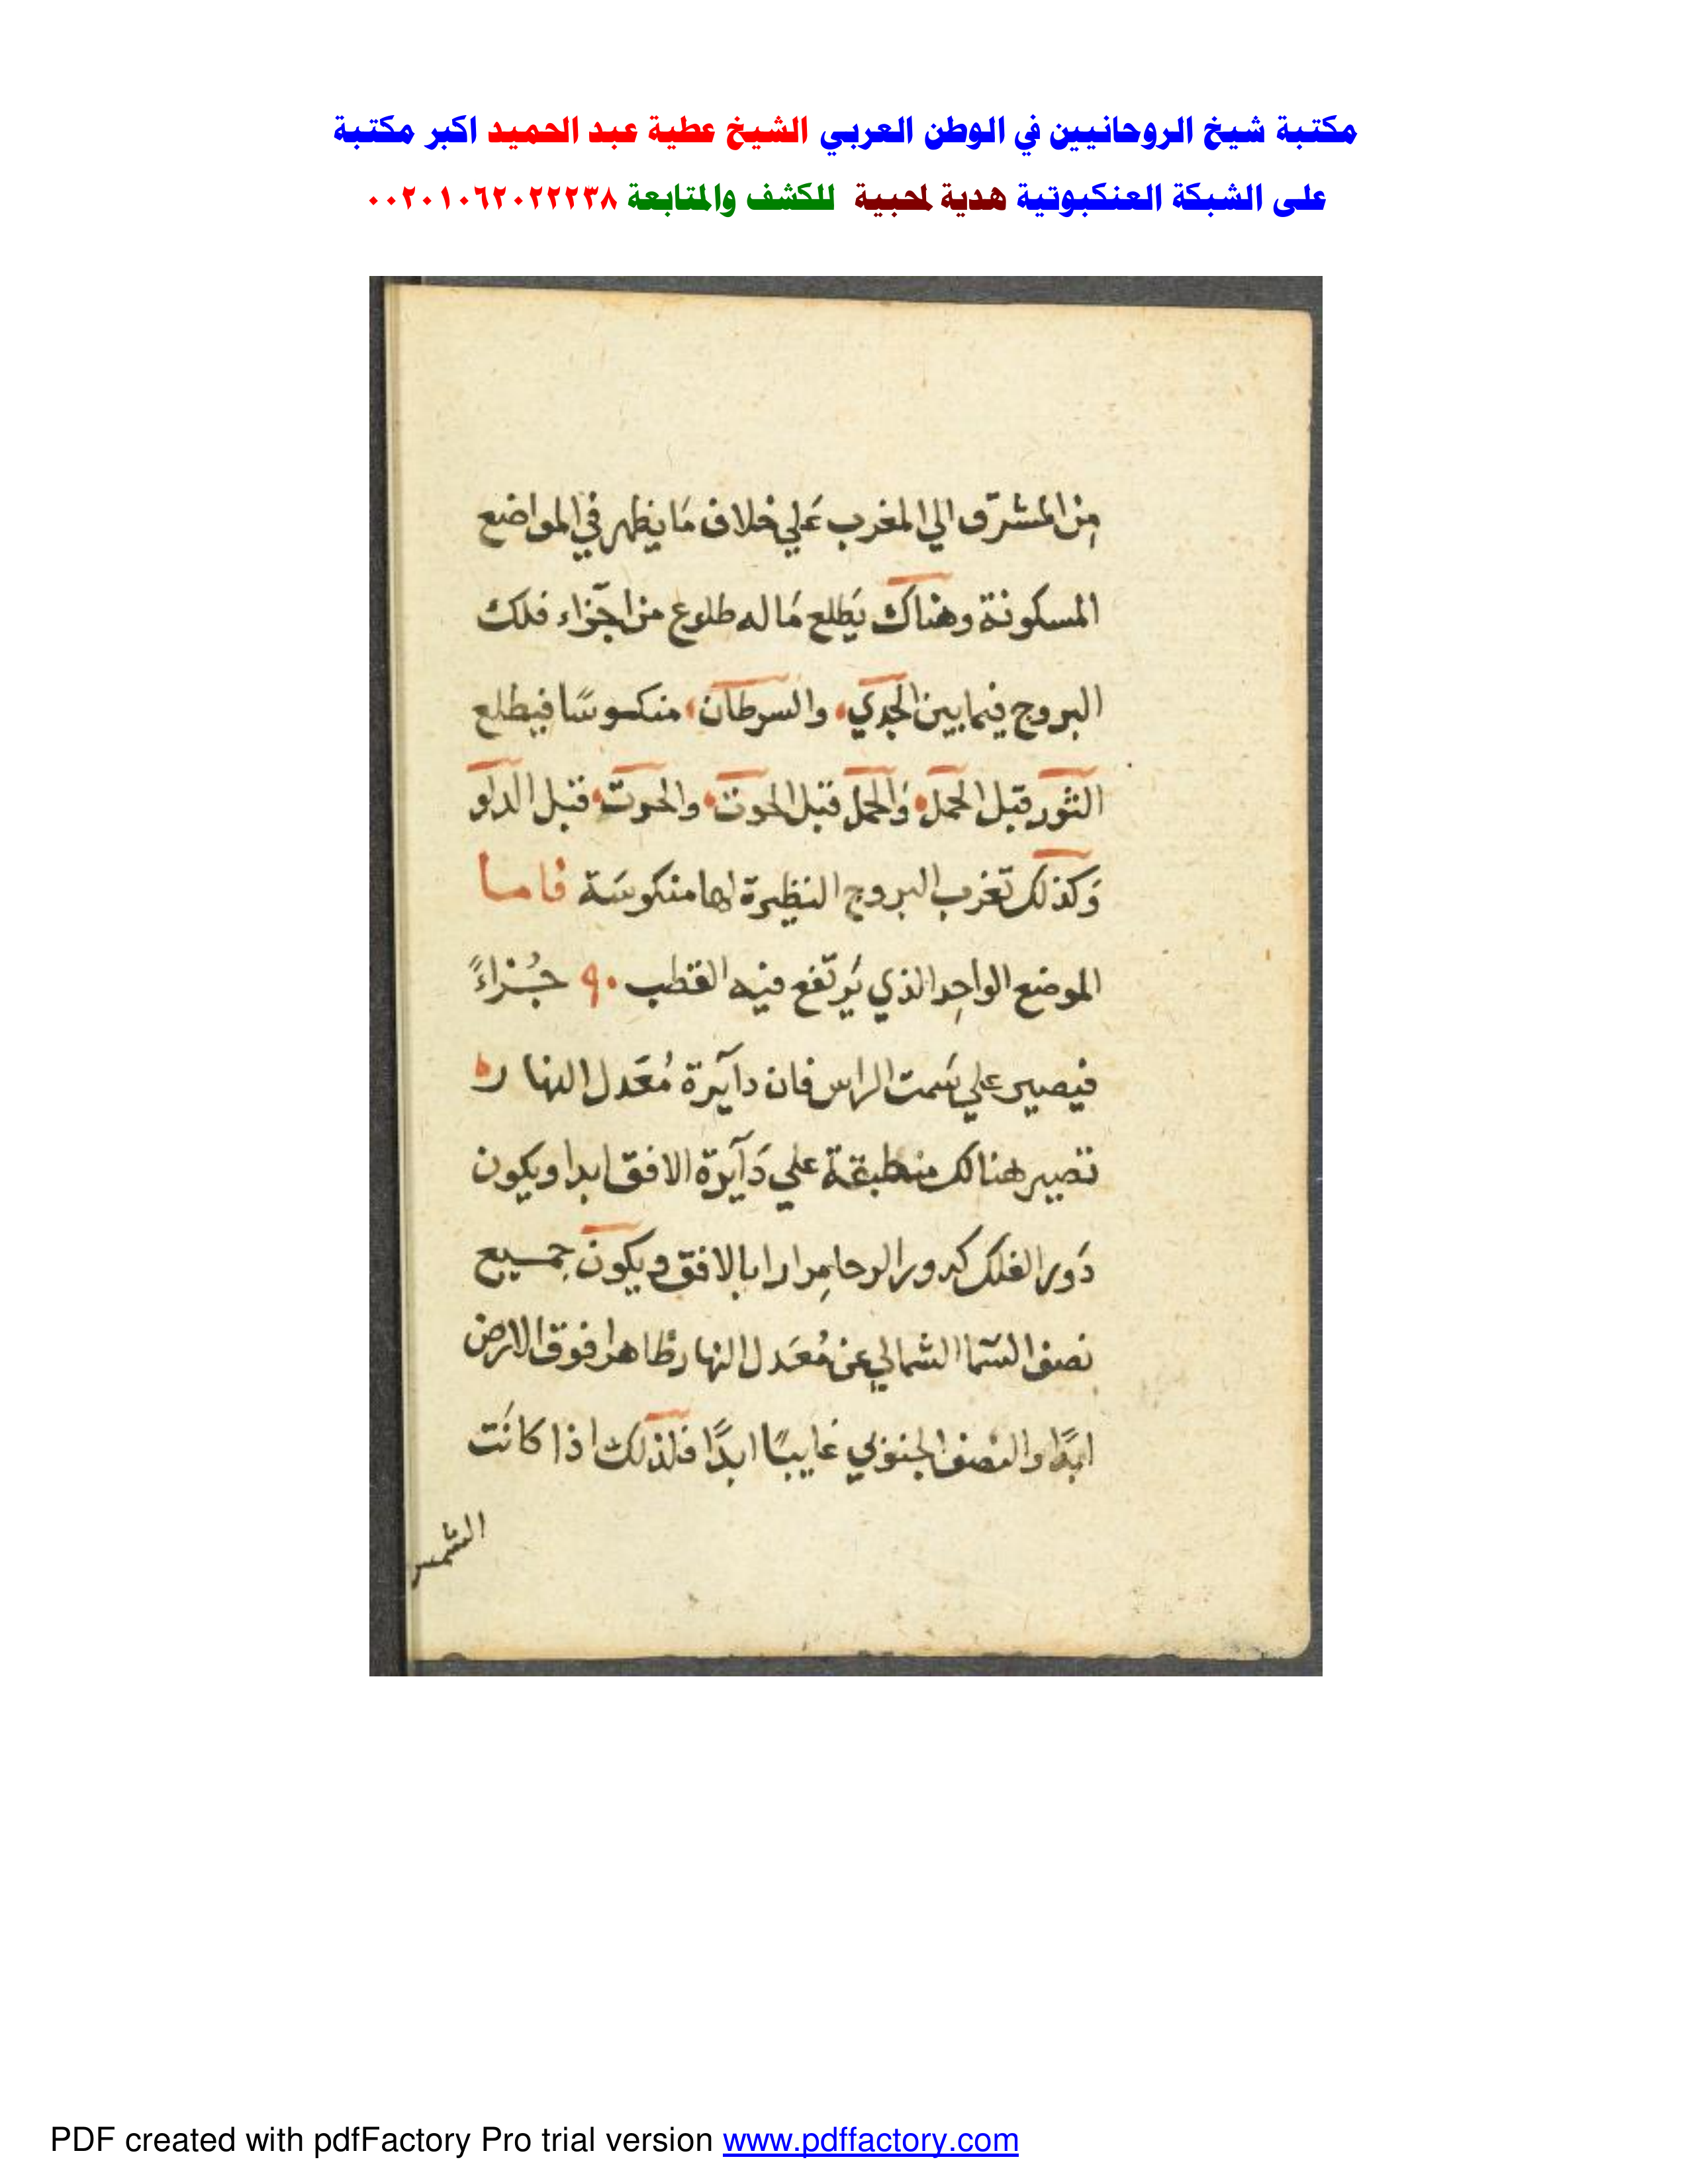 مكتبة شيخ الروحانيين في الوطن العربي الشيخ عطية عبد الحميد اكبر مكتبة
على الشبكة العنكبوتية هدية لمحبية للكشف والمتابعة ٠٠٢٠١٠٦٢٠٢٢٢٣٨
مِن المشرق الي المغرب عَلي خلاف مَا يظهر في المواضع
المسكونة وهناك يَطلع مَا له طلوع من اجزاء فلك
البروج فيما بين الجدي، والسرطان، منكوسًا فيطلع
الثور قبل الحمل، وَالحمل قبل الحوت، والحوت، قبل الدلو
وَكذلك تغرب البروج النظيرة لها منكوسَة فاما
الموضع الواحِد الذي يَرتفع فيه القطب ٩٠ جُزاءً
فيصير علي سَمت الراس فان دآيرة مُعَدل النهاره
تصير هنالك منطبقة علي دَآيرة الافق ابدا ويكون
دَور الفلك كدور الرحا مِرارا بالافق ويكون جميع
نصف السَما الشمالي عن مُعَدل النهار ظاهرا فوق الارض
ابدًا والنصف الجنوبي غايبًا ابدًا فلذلك اذا كانَت
الشمس
PDF created with pdfFactory Pro trial version www.pdffactory.com